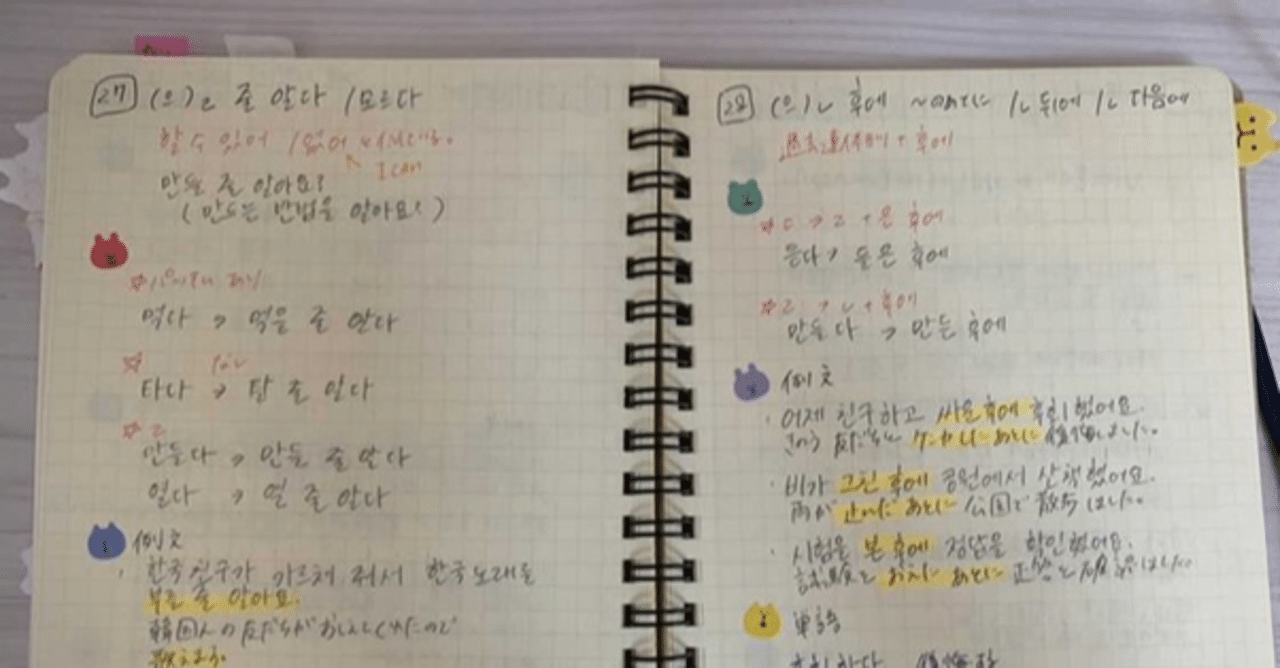 27 (으)ㄹ 줄 알다 / 모르다
할 수 있어 / 없어
I can
만들 줄 알아요?
(만드는 방법을 알아요?)
먹다 → 먹을 줄 알다
타다 → 탈 줄 알다
ㄹ
만들다 → 만들 줄 알다
열다 → 열 줄 알다
例文
한국 친구가 가르쳐 줘서 한국 노래를
부를 줄 알아요.
韓国人の友だちがおしえてくれたので
歌えます。
28 (으)ㄴ 후에 ~のあとに /ㄴ 뒤에 /ㄴ 다음에
過去連体形 + 후에
ㄷ → ㄹ + 은 후에
듣다 → 들은 후에
ㄹ → ㄴ + 후에
만들다 → 만든 후에
例文
· 어제 친구하고 싸운 후에 후회했어요.
きのう 友だちと ケンカしたあとに 後悔しました。
· 비가 그친 후에 공원에서 산책했어요.
雨が 止んだあとに 公園で 散歩しました。
· 시험을 본 후에 정답을 확인했어요.
試験を あとに 正答を確認しました
単語
후회하다 後悔